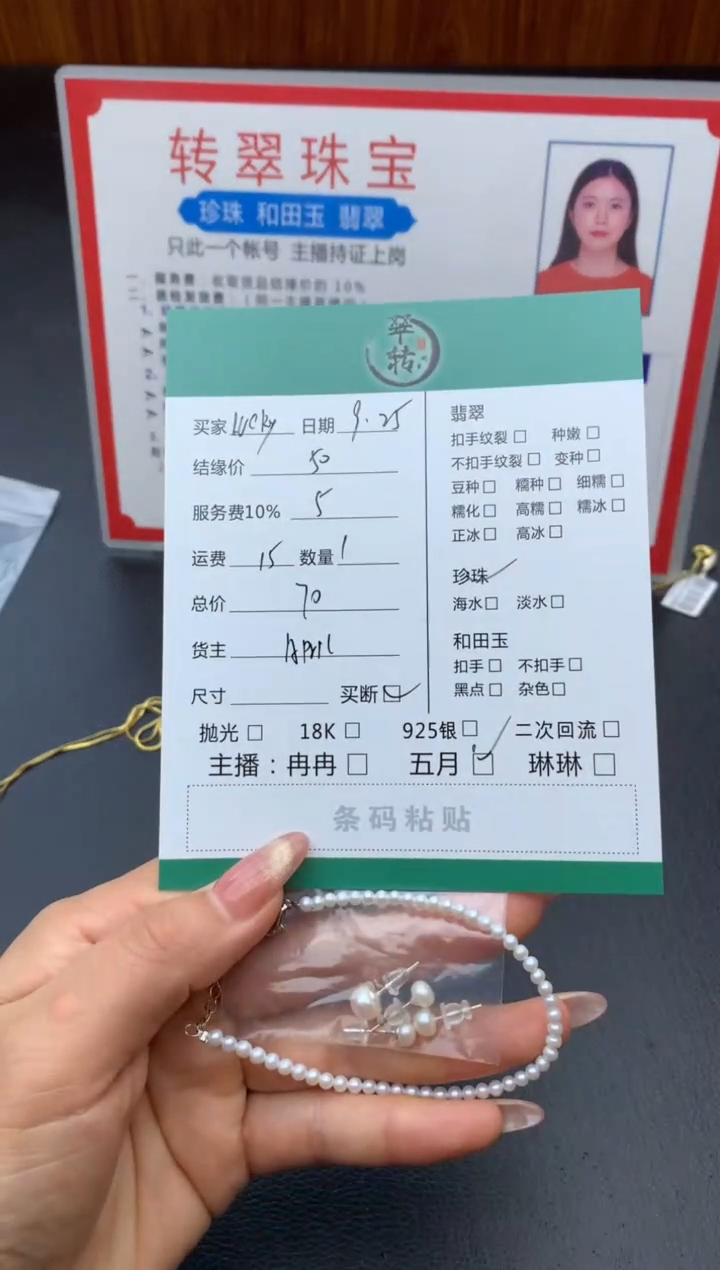 转翠珠宝
珍珠 和田玉 翡翠
只此一个帐号 主播持证上岗
一、服务费：收取货品结缘价的 10%
翠转
买家 lucky 日期 9.25
结缘价 50
服务费10% 5
运费 15 数量 1
总价 70
货主 April
尺寸 买断☑
翡翠
扣手纹裂□ 种嫩□
不扣手纹裂□ 变种□
豆种□ 糯种□ 细糯□
糯化□ 高糯□ 糯冰□
正冰□ 高冰□
珍珠✓
海水□ 淡水□
和田玉
扣手□ 不扣手□
黑点□ 杂色□
抛光□ 18K□ 925银□ 二次回流□
主播：冉冉□ 五月☑ 琳琳□
条码粘贴